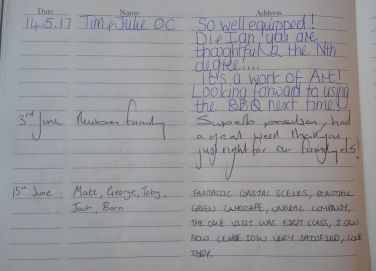 Date Name Address
14.5.17 Tim & Julie OC So well equipped!
Di & Ian you are
thoughtful to the Nth
degree!....
It's a work of Art!
Looking forward to using
the BBQ next time!
3rd June family Superb position, had
a great week thankyou
just right for our family of 5!
15th June Matt, George, Toby, FANTASTIC COASTAL SCENES, BEAUTIFUL
Josh, Barn GREEN LANDSCAPE, UNREAL COMPANY,
THE CAVE VISIT WAS FIRST CLASS, I CAN
NOW LEAVE IOW VERY SATISFIED, LOVE
TOBY.